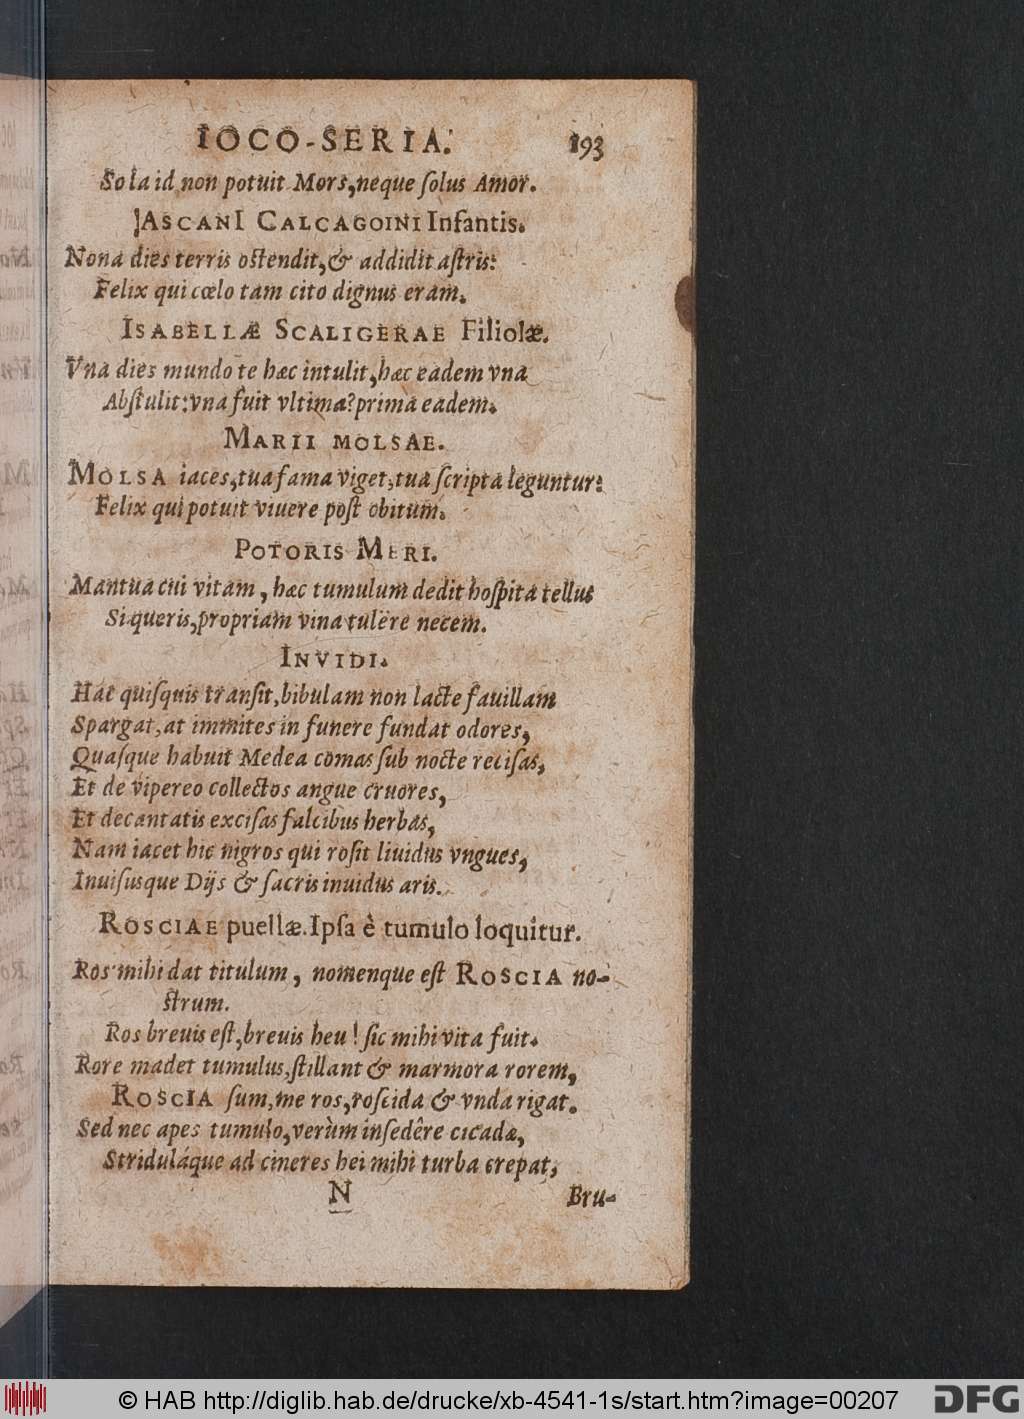 IOCO-SERIA. 193
Sola id non potuit Mors, neque ſolus Amor.
IASCANI CALCAGOINI Infantis.
Nona dies terris oſtendit, & addidit aſtris:
Felix qui cœlo tam cito dignus eram.
ISABELLÆ SCALIGERAE Filiolæ.
Vna dies mundo te hæc intulit, hæc eadem vna
Abſtulit: vna fuit vltima? prima eadem.
MARII MOLSAE.
MOLSA iaces, tua fama viget, tua ſcripta leguntur:
Felix qui potuit viuere poſt obitum.
POTORIS MERI.
Mantua cui vitam, hæc tumulum dedit hoſpita tellus
Si queris, propriam vina tulêre necem.
INVIDI.
Hac quiſquis tranſit, bibulam non lacte fauillam
Spargat, at immites in funere fundat odores,
Quaſque habuit Medea comas ſub nocte reciſas,
Et de vipereo collectos angue cruores,
Et decantatis exciſas falcibus herbas,
Nam iacet hic nigros qui roſit liuidus vngues,
Inuiſusque Dijs & ſacris inuidus aris.
ROSCIAE puellæ. Ipſa è tumulo loquitur.
Ros mihi dat titulum, nomenque eſt ROSCIA no-
ſtrum.
Ros breuis eſt, breuis heu! ſic mihi vita fuit.
Rore madet tumulus, ſtillant & marmora rorem,
ROSCIA ſum, me ros, roſcida & vnda rigat.
Sed nec apes tumulo, verùm inſedêre cicadæ,
Striduláque ad cineres hei mihi turba crepat,
N Bru-
© HAB http://diglib.hab.de/drucke/xb-4541-1s/start.htm?image=00207
DFG